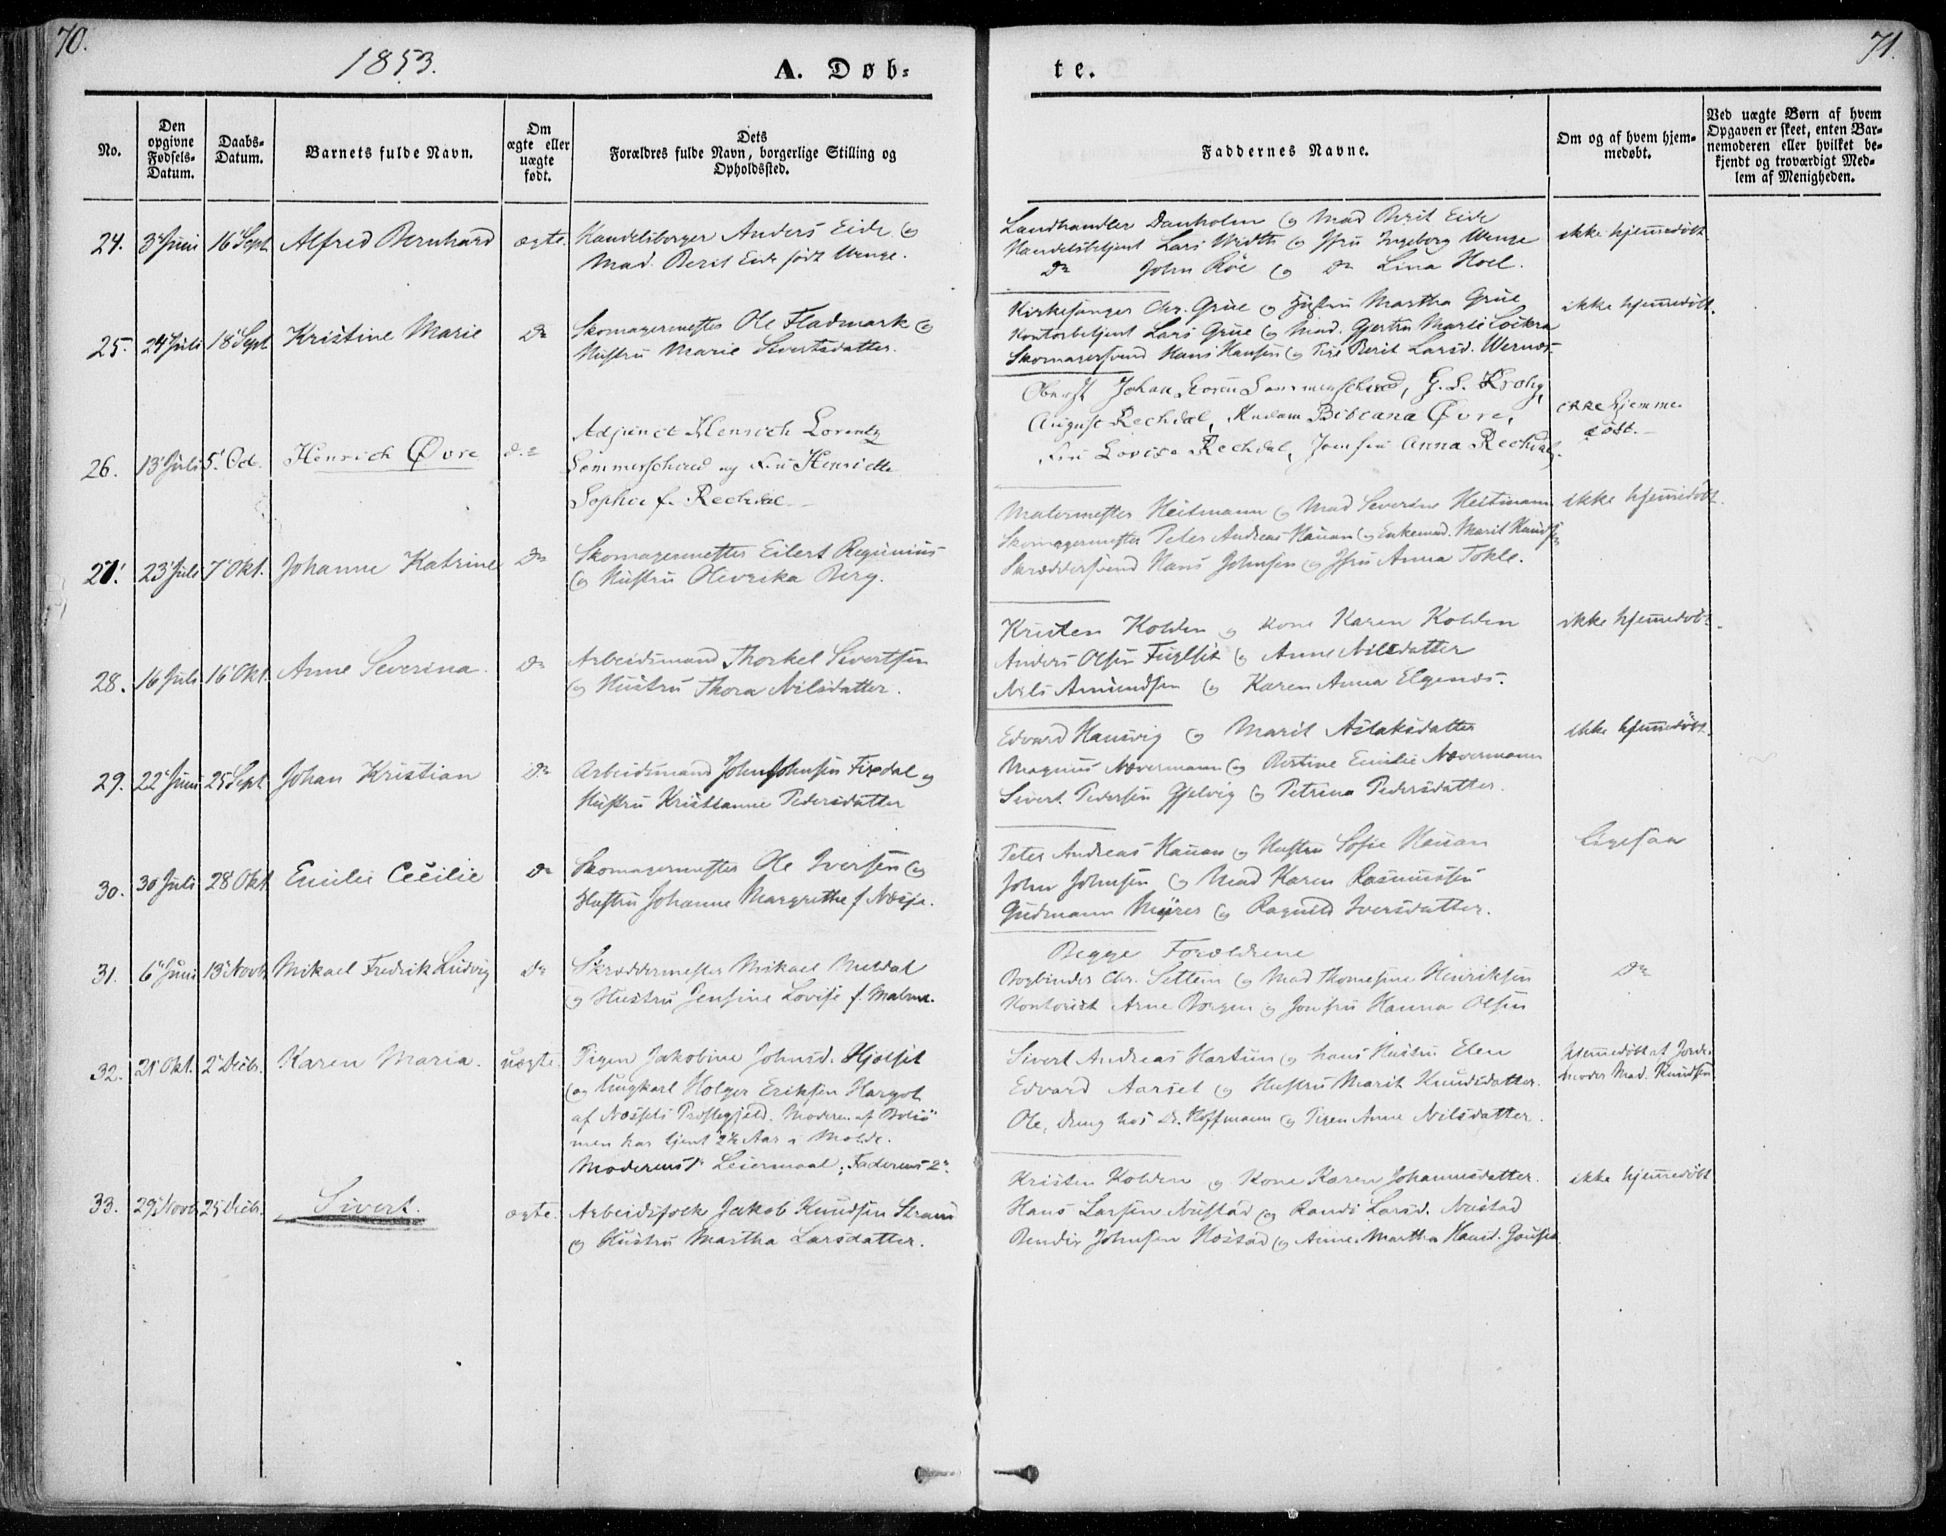 70.
1853.
A. Døb-
No.
Den opgivne Fødsels-Datum.
Daabs-Datum.
Barnets fulde Navn.
Om ægte eller uægte født.
Dets Forældres fulde Navn, borgerlige Stilling og Opholdssted.
24. 3 Juni 16 Sept. Alfred Bernhard ægte. Handelsborger Anders Eide og
Mad. Berit Eide født Wenge.
25. 24 Juli 18 Sept Kristine Marie Do Skomagermester Ole Fladmark og
Hustru Marie Sivertsdatter.
26. 13 Juli 5. Oct. Henrich Øvre do Adjunct Henrich Lorentz
Sommerschield og Fru Henriette
Sophie f. Rechdal
27. 23 Juli 7 Okt. Johanne Katrine Do Skomagermester Eilert
og Hustru Berg.
28. 16 Juli 16 Okt. Anne Severina. Do Arbeidsmand Thorkel Sivertsen
og Hustru Thora Nilsdatter.
29. 22 Juni 25 Sept. Johan Kristian Do Arbeidsmand John Johnsen Fixdal og
Hustru Kristianne Pedersdatter
30. 30 Juli 28 Okt Emilie Cecilie Do Skomagermester Ole Iversen og
Hustru Johanne Margrethe f. Næsje.
31. 6 Juni 13 Novb. Mikael Fredrik Ludvig Do Skræddermester Mikael
og Hustru Jensine Lovise f. Malme.
32. 21 Okt. 2 Decbr. Karen Maria. uægte. Pigen Jakobine Johnsd. Hjelset
og Ungkarl Holger Eriksen
af Næssets Præstegjeld. Moderen af Bolsø
men har tjent 2½ Aar i Molde.
Moderens 1ste Leiermaal; Faderens 2.
33. 29 Novb. 25 Decbr. Sivert. ægte. Arbeidsfolk Jakob Knudsen Strand
og Hustru Martha Larsdatter.
71.
te.
Faddernes Navne.
Om og af hvem hjemmedøbt.
Ved uægte Børn af hvem Opgaven er skeet, enten Barnemoderen eller hvilket bekjendt og troværdigt Medlem af Menigheden.
Landhandler Danholm og Mad Berit Eide
Handelsbetjent Lars og Jfru Ingeborg Wenge
Do John Røe og Do Lina Hoel.
ikke hjemmedøbt
Kirkesanger Chr. Grue og Hustru Martha Grue
Kontorbetjent Lars Grue og Mad. Gjertru Marie
Skomagersvend Hans Hansen og Pige Berit Larsd. Wernes.
ikke hjemmedøbt.
Oberst Johan Sommerschield, G. S. Krohg,
August Rechdal, Madam Bibiana Øvre,
Fru Lovise Rechdal, Jomfru Anna Rechdal.
ikke hjemme
døbt.
Malermester Heitmann og Mad Severine Heitmann
Skomagermester Peter Andreas Hauan og Enkemad. Marit Knudsen
Skræddersvend Hans Johnsen og Jfru Anna Tokle.
ikke hjemmedøbt.
Kristen Kolden og Kone Karen Kolden
Anders Olsen Fuglset og Anne Nilsdatter
Nils Amundsen og Karen Anna Elgenæs.
ikke hjemmedøbt.
Edvard Hansvig og Marit Aslaksdatter
Magnus Nævermann og Bertine Emilie Nævermann
Sivert Pedersen Gjelvig og Petrina Pedersdatter.
ikke hjemmedøbt.
Peter Andreas Hauan og Hustru Sofie Hauan
John Johnsen og Mad Karen Rasmussen
Gudmann og Ragnild Iversdatter.
Ligesaa
Begge Forældrene
Bogbinder Chr. Settem og Mad Thomesine Henriksen
Kontorist Arne Borgen og Jomfru Hanna Olsen
Do
Sivert Andreas Hartun og hans Hustru Elen
Edvard Aarset og Hustru Marit Knudsdatter.
Ole, dreng hos Dr. Hoffmann og Pigen Anne Nilsdatter.
hjemmedøbt af Jorde-
moder Mad. Knudsen
Kristen Kolden og Kone Karen Johannesdatter.
Hans Larsen Nustad og Randi Larsd. Nustad
Bendix Johnsen Hostad og Anne Martha Hansd.
ikke hjemmedøbt